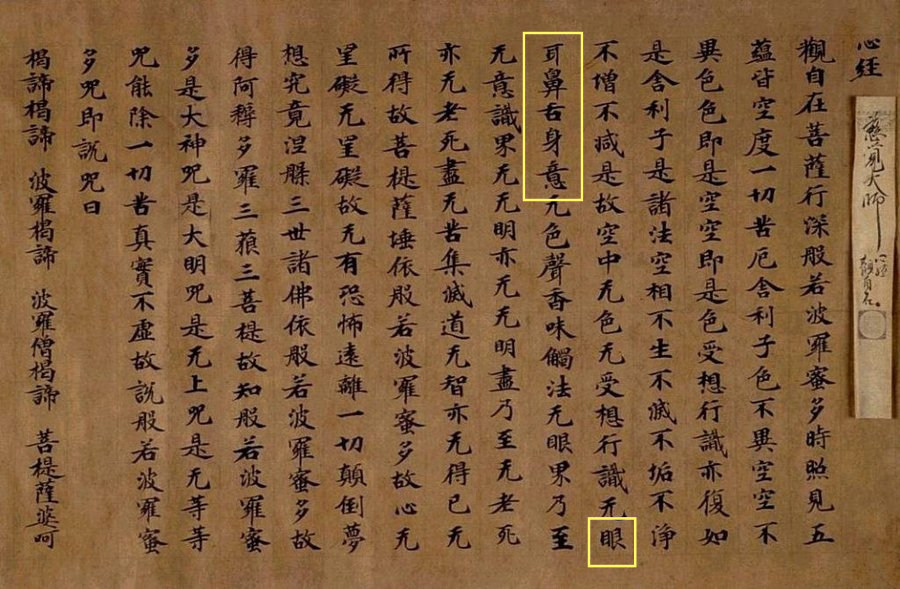 心経
慈覚大師
觀自在菩薩行深般若波羅蜜多時照見五
蘊皆空度一切苦厄舍利子色不異空空不
異色色即是空空即是色受想行識亦復如
是舍利子是諸法空相不生不滅不垢不淨
不増不減是故空中无色无受想行識无眼
耳鼻舌身意无色聲香味觸法无眼界乃至
无意識界无无明亦无无明盡乃至无老死
亦无老死盡无苦集滅道无智亦无得已无
所得故菩提薩埵依般若波羅蜜多故心无
罣礙无罣礙故无有恐怖遠離一切顛倒夢
想究竟涅槃三世諸佛依般若波羅蜜多故
得阿耨多羅三藐三菩提故知般若波羅蜜
多是大神咒是大明咒是无上咒是无等等
咒能除一切苦真實不虛故說般若波羅蜜
多咒即說咒曰
揭諦揭諦 波羅揭諦 波羅僧揭諦 菩提薩婆呵